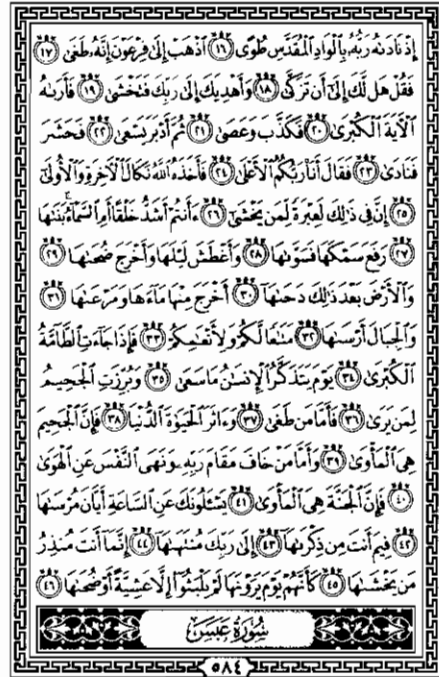 إِذْ نَادَىٰهُ رَبُّهُۥ بِٱلْوَادِ ٱلْمُقَدَّسِ طُوًى ١٦ ٱذْهَبْ إِلَىٰ فِرْعَوْنَ إِنَّهُۥ طَغَىٰ ١٧
فَقُلْ هَل لَّكَ إِلَىٰٓ أَن تَزَكَّىٰ ١٨ وَأَهْدِيَكَ إِلَىٰ رَبِّكَ فَتَخْشَىٰ ١٩ فَأَرَىٰهُ
ٱلْأَيَةَ ٱلْكُبْرَىٰ ٢٠ فَكَذَّبَ وَعَصَىٰ ٢١ ثُمَّ أَدْبَرَ يَسْعَىٰ ٢٢ فَحَشَرَ
فَنَادَىٰ ٢٣ فَقَالَ أَنَا۠ رَبُّكُمُ ٱلْأَعْلَىٰ ٢٤ فَأَخَذَهُ ٱللَّهُ نَكَالَ ٱلْأَخِرَةِ وَٱلْأُولَىٰٓ
٢٥ إِنَّ فِى ذَٰلِكَ لَعِبْرَةً لِّمَن يَخْشَىٰٓ ٢٦ ءَأَنتُمْ أَشَدُّ خَلْقًا أَمِ ٱلسَّمَآءُ ۚ بَنَىٰهَا
٢٧ رَفَعَ سَمْكَهَا فَسَوَّىٰهَا ٢٨ وَأَغْطَشَ لَيْلَهَا وَأَخْرَجَ ضُحَىٰهَا ٢٩
وَٱلْأَرْضَ بَعْدَ ذَٰلِكَ دَحَىٰهَآ ٣٠ أَخْرَجَ مِنْهَا مَآءَهَا وَمَرْعَىٰهَا ٣١
وَٱلْجِبَالَ أَرْسَىٰهَا ٣٢ مَتَٰعًا لَّكُمْ وَلِأَنْعَٰمِكُمْ ٣٣ فَإِذَا جَآءَتِ ٱلطَّآمَّةُ
ٱلْكُبْرَىٰ ٣٤ يَوْمَ يَتَذَكَّرُ ٱلْإِنسَٰنُ مَا سَعَىٰ ٣٥ وَبُرِّزَتِ ٱلْجَحِيمُ
لِمَن يَرَىٰ ٣٦ فَأَمَّا مَن طَغَىٰ ٣٧ وَءَاثَرَ ٱلْحَيَوٰةَ ٱلدُّنْيَا ٣٨ فَإِنَّ ٱلْجَحِيمَ
هِىَ ٱلْمَأْوَىٰ ٣٩ وَأَمَّا مَنْ خَافَ مَقَامَ رَبِّهِۦ وَنَهَى ٱلنَّفْسَ عَنِ ٱلْهَوَىٰ
٤٠ فَإِنَّ ٱلْجَنَّةَ هِىَ ٱلْمَأْوَىٰ ٤١ يَسْـَٔلُونَكَ عَنِ ٱلسَّاعَةِ أَيَّانَ مُرْسَىٰهَا
٤٢ فِيمَ أَنتَ مِن ذِكْرَىٰهَآ ٤٣ إِلَىٰ رَبِّكَ مُنتَهَىٰهَآ ٤٤ إِنَّمَآ أَنتَ مُنذِرُ
مَن يَخْشَىٰهَا ٤٥ كَأَنَّهُمْ يَوْمَ يَرَوْنَهَا لَمْ يَلْبَثُوٓا۟ إِلَّا عَشِيَّةً أَوْ ضُحَىٰهَا ٤٦
سُورَةُ عَبَسَ
٥٨٤